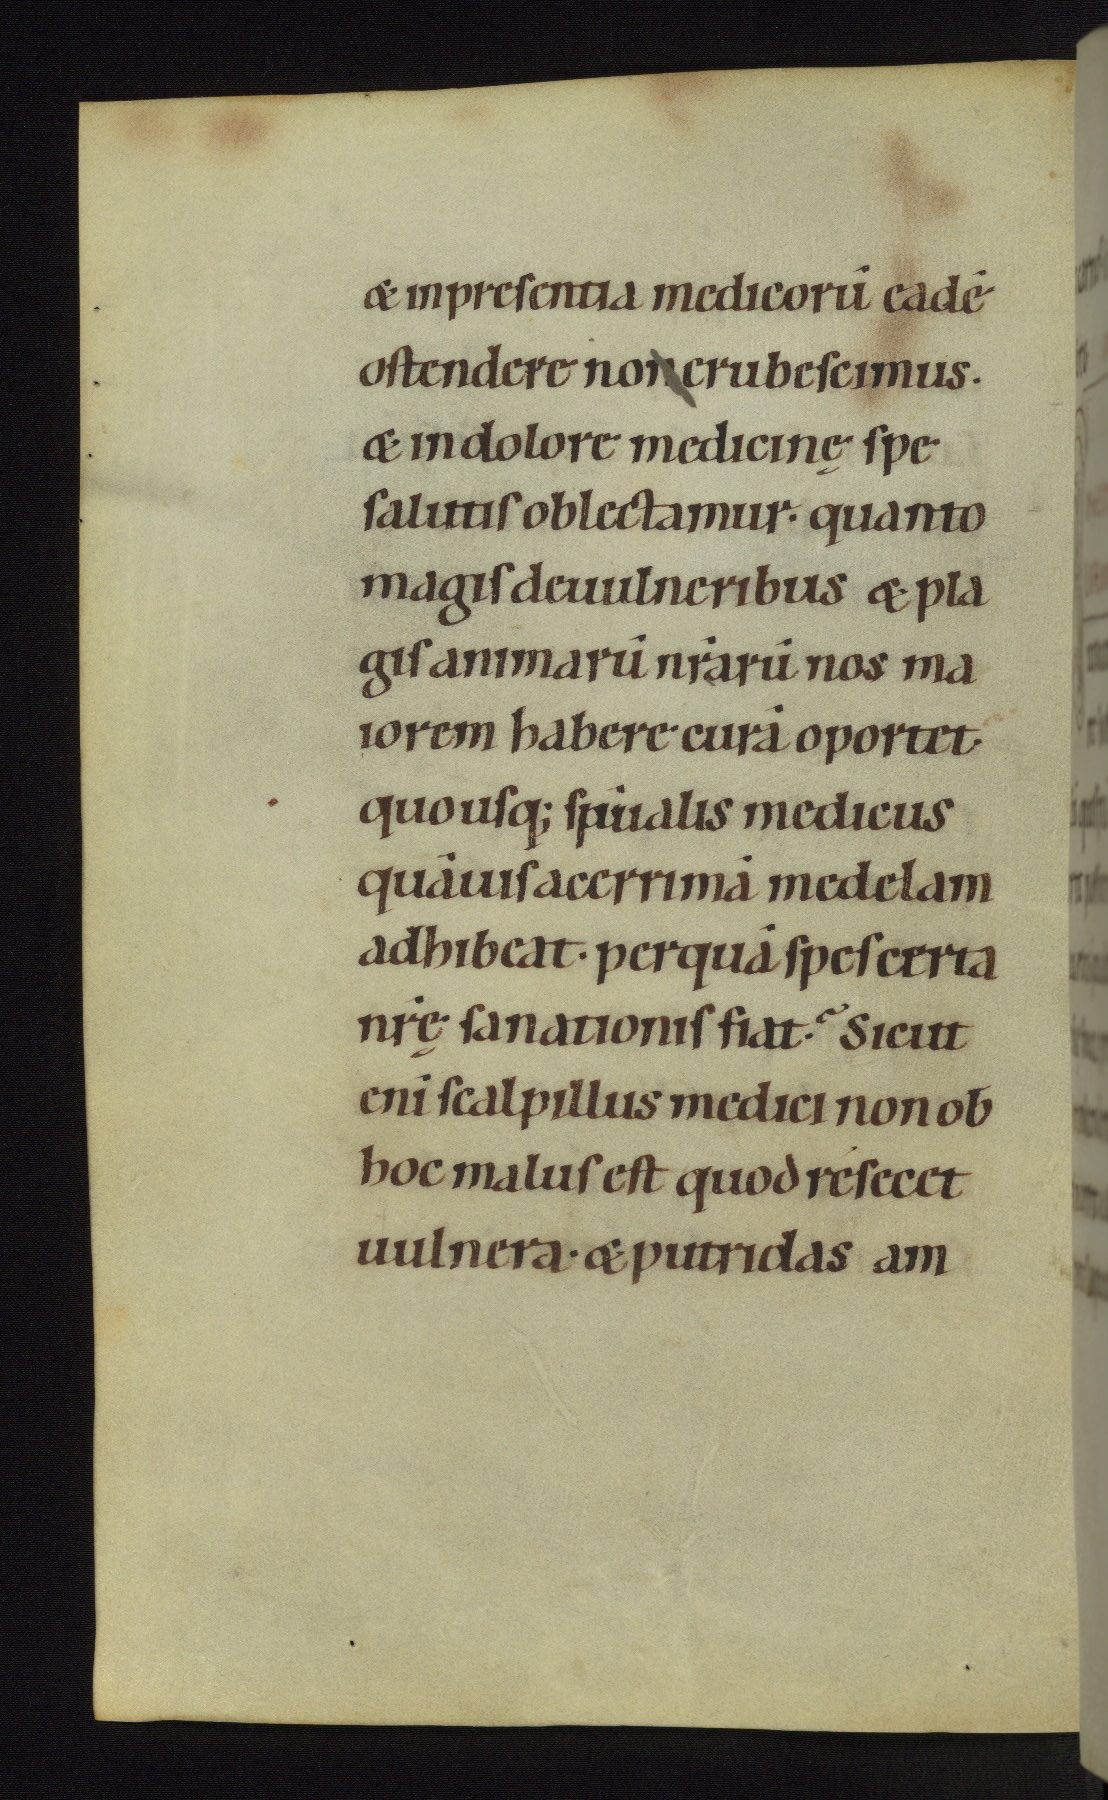 & in presentia medicorū eadē
ostendere non erubescimus.
& in dolore medicinę spe
salutis oblectamur· quanto
magis de uulneribus & pla
gis animarū nr̄arū nos ma
iorem habere curā oportet·
quousq; sp̄ualis medicus
quāuis acerrimā medelam
adhibeat· per quā spes certa
nr̄ę sanationis fiat. Sicut
enī scalpillus medici non ob
hoc malus est quod résecet
uulnera· & putridas am